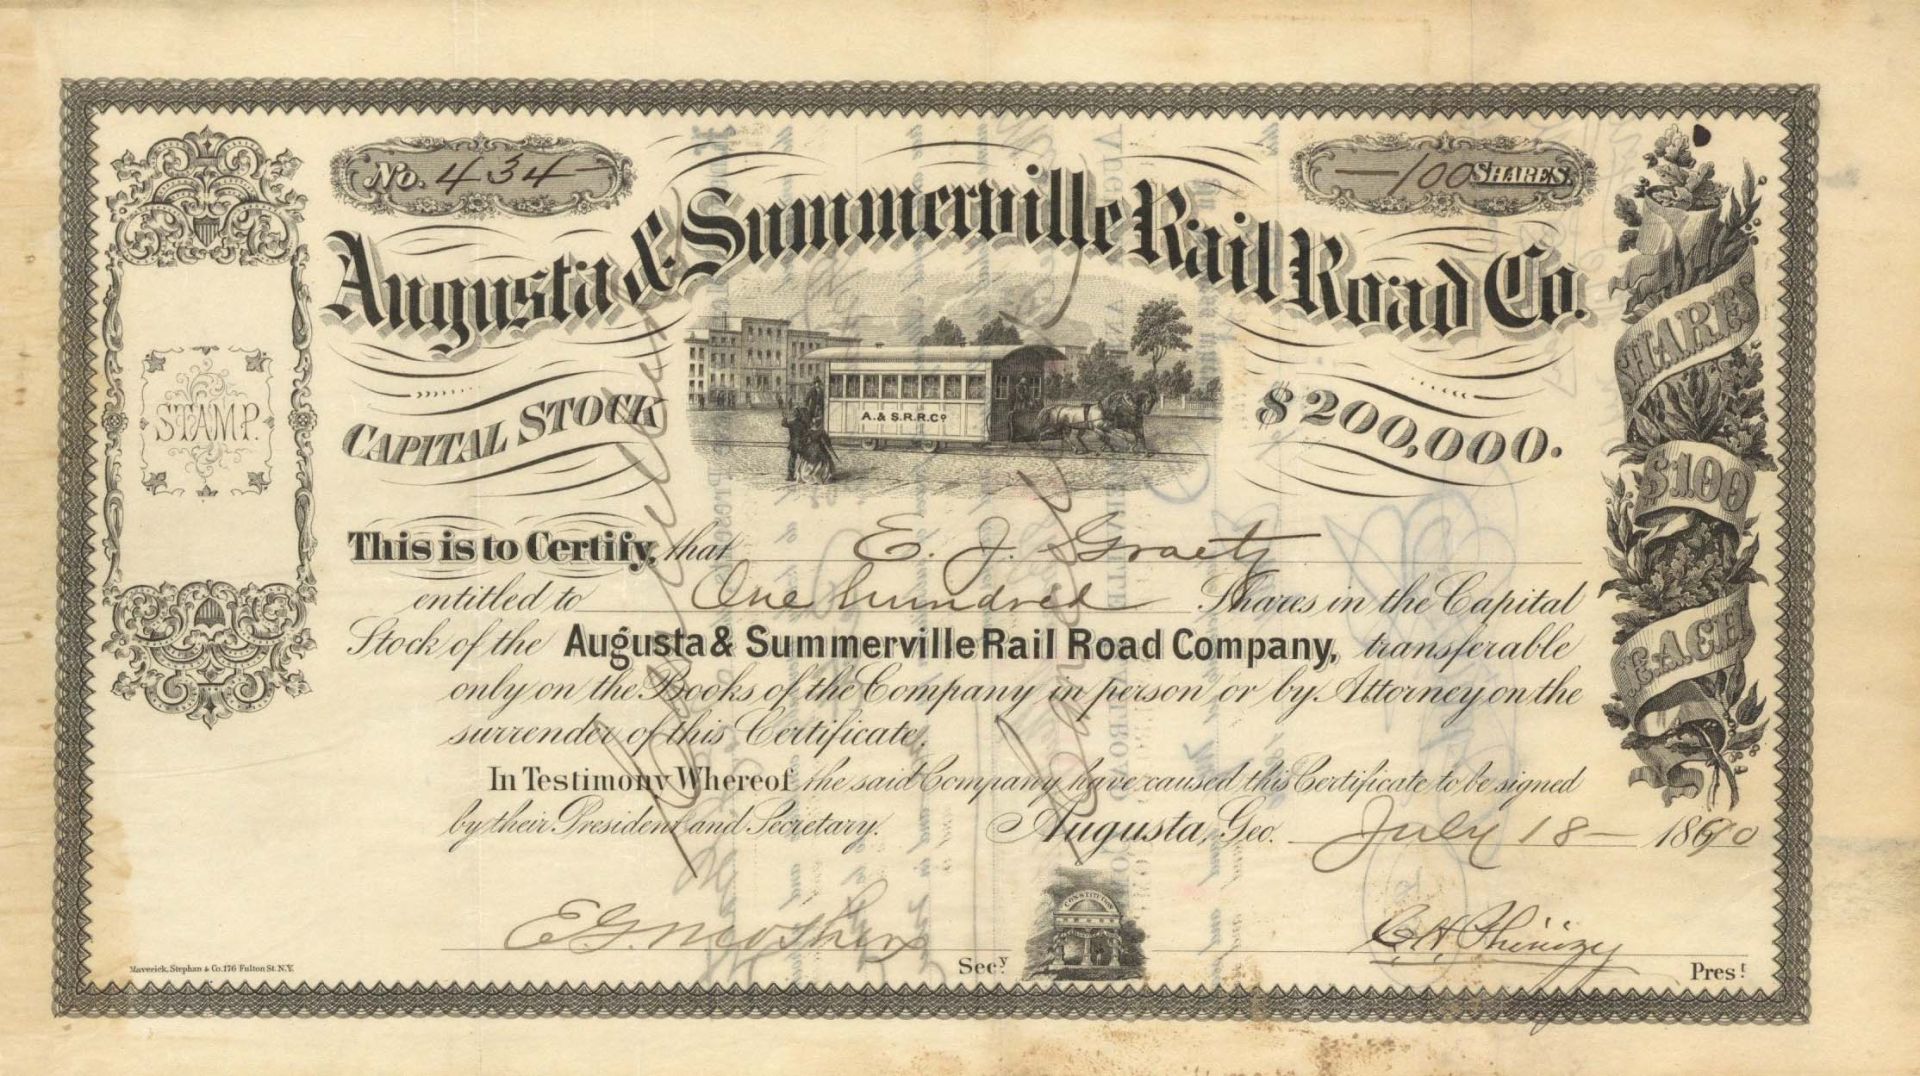 No. 434
—100 SHARES.
Augusta & Summerville Rail Road Co.
CAPITAL STOCK
$200,000.
STAMP.
A. & S.R.R.Co
SHARES
$100
EACH
This is to Certify, that E. J. Graetz
entitled to One hundred Shares in the Capital
Stock of the Augusta & Summerville Rail Road Company, transferable
only on the Books of the Company in person or by Attorney on the
surrender of this Certificate.
In Testimony Whereof the said Company have caused this Certificate to be signed
by their President and Secretary. Augusta, Geo. July 18 — 1890
Cancelled
CONSTITUTION
E G Mosher Secy.
C H Phinizy Prest.
Maverick, Stephan & Co. 176 Fulton St. N.Y.